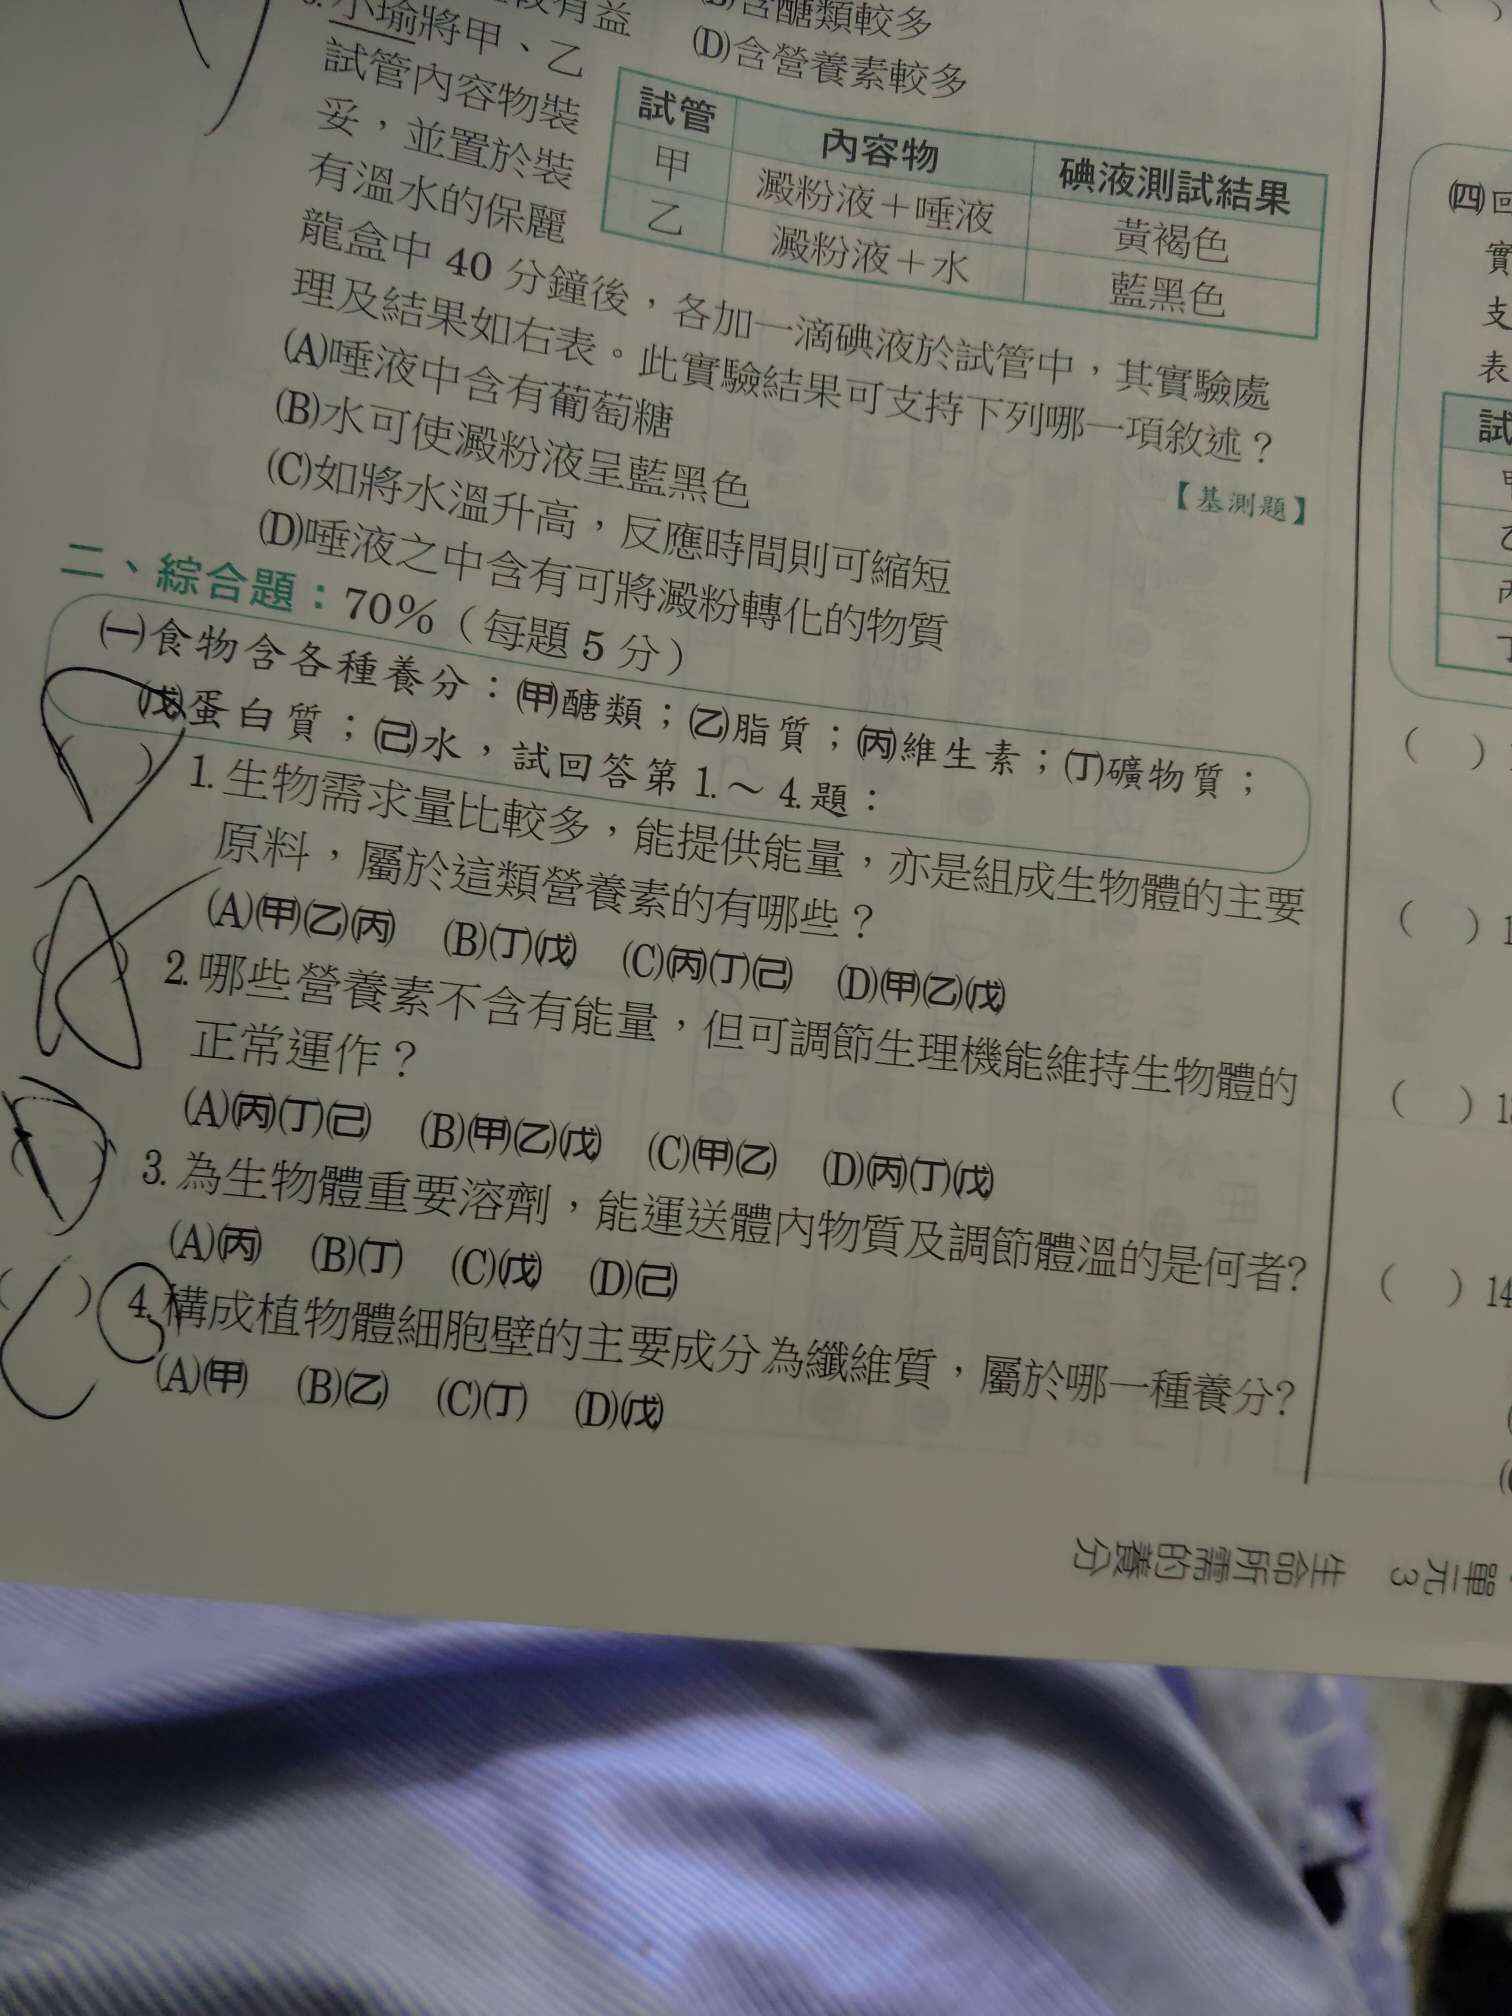 段有益
(B)含醣類較多
(D)含營養素較多
小瑜將甲、乙
試管內容物裝
妥，並置於裝
有溫水的保麗
龍盒中 40 分鐘後，各加一滴碘液於試管中，其實驗處
理及結果如右表。此實驗結果可支持下列哪一項敘述？
試管 內容物 碘液測試結果
甲 澱粉液＋唾液 黃褐色
乙 澱粉液＋水 藍黑色
【基測題】
(A)唾液中含有葡萄糖
(B)水可使澱粉液呈藍黑色
(C)如將水溫升高，反應時間則可縮短
(D)唾液之中含有可將澱粉轉化的物質
二、綜合題：70%（每題 5 分）
㈠食物含各種養分：(甲)醣類；(乙)脂質；(丙)維生素；(丁)礦物質；
(戊)蛋白質；(己)水，試回答第 1.～ 4.題：
( ) 1. 生物需求量比較多，能提供能量，亦是組成生物體的主要
原料，屬於這類營養素的有哪些？
(A)(甲)(乙)(丙) (B)(丁)(戊) (C)(丙)(丁)(己) (D)(甲)(乙)(戊)
( ) 2. 哪些營養素不含有能量，但可調節生理機能維持生物體的
正常運作？
(A)(丙)(丁)(己) (B)(甲)(乙)(戊) (C)(甲)(乙) (D)(丙)(丁)(戊)
( ) 3. 為生物體重要溶劑，能運送體內物質及調節體溫的是何者？
(A)(丙) (B)(丁) (C)(戊) (D)(己)
( ) 4. 構成植物體細胞壁的主要成分為纖維質，屬於哪一種養分？
(A)(甲) (B)(乙) (C)(丁) (D)(戊)
㈣
實
支
表
試
( )
( ) 1
( ) 1
( ) 14
單元 3 生命所需的養分